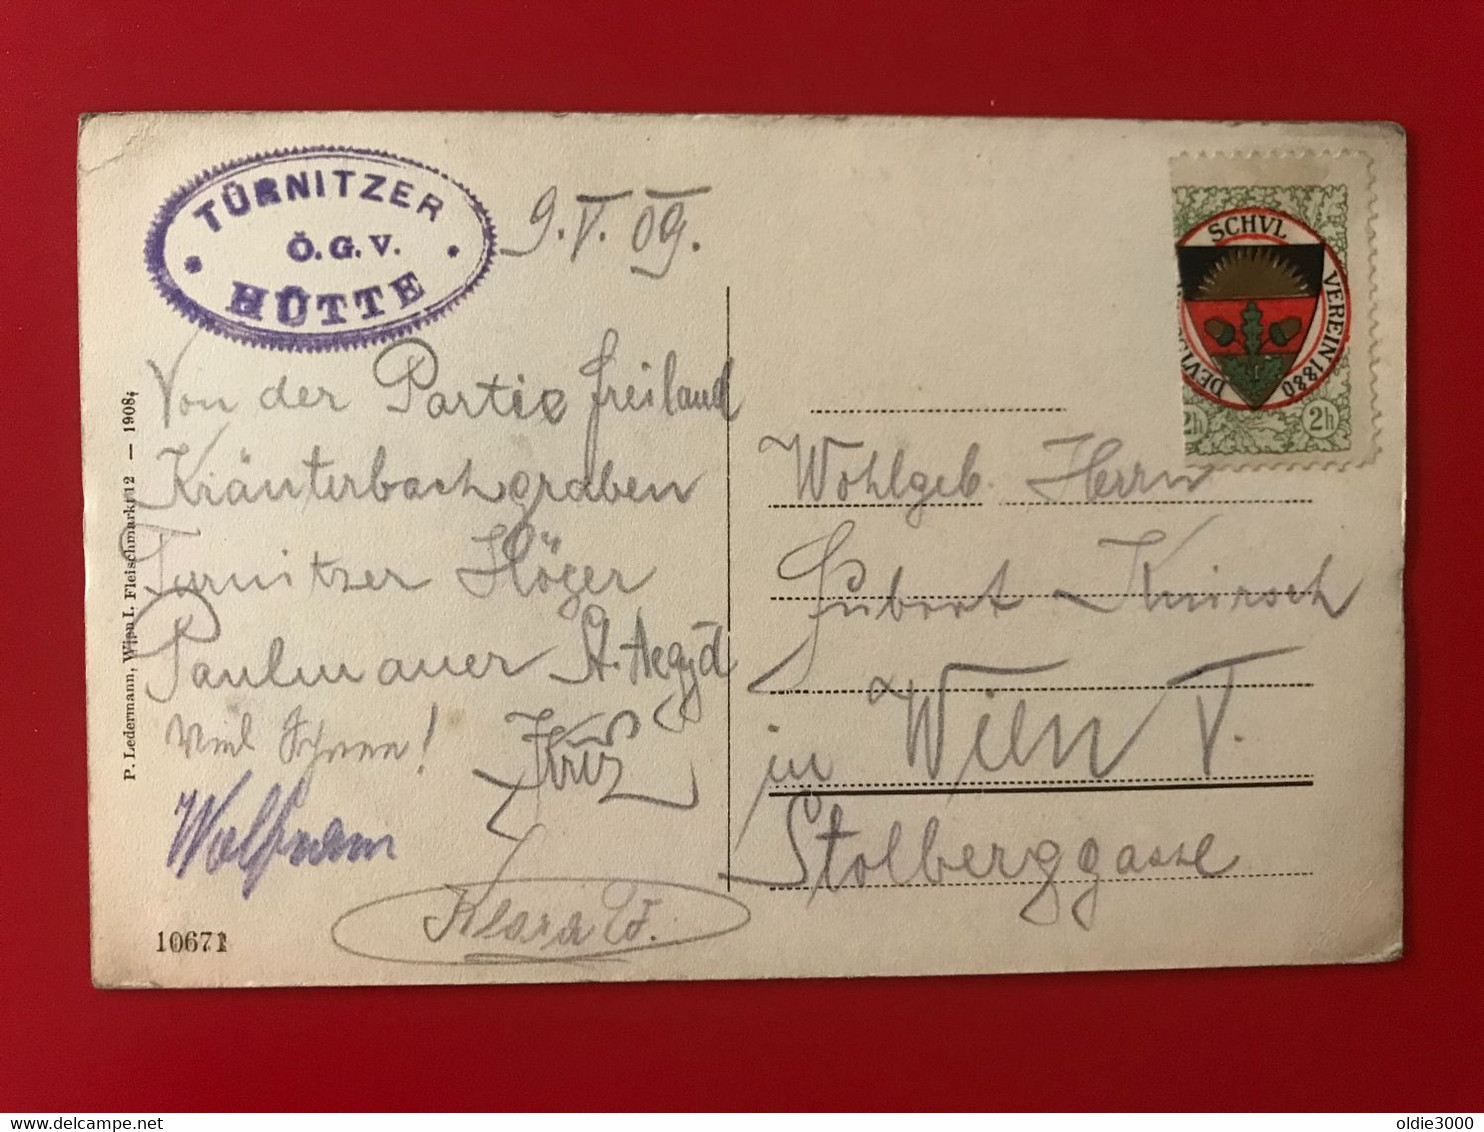 TÜRNITZER
Ö.G.V.
HÜTTE
9.V.09.
Von der Partie Freiland
Kräuterbachgraben
Turnitzer Höger
Paulmauer St. Aegyd
Kříž
Klara W.
10671
P. Ledermann, Wien I. Fleischmarkt 12 — 1908.
DEVTSCHER SCHVL VEREIN 1880
2h 2h
Wohlgeb. Herrn
Hubert Knirsch
in Wien V.
Stolberggasse
oldie3000